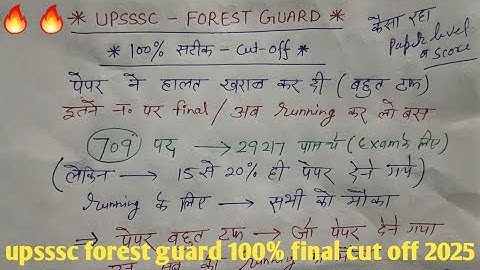 🔥🔥 * UPSSSC - FOREST GUARD *
* 100% सटीक - cut-off *
कैसा रहा
Paper level
& score
पेपर ने हालत खराब कर दी ( बहुत टफ )
इतने न० पर final / अब running कर लो बस
709 पद → 29217 पात्र थे (Exam के लिए)
(लेकिन → 15 से 20% ही पेपर देने गये)
running के लिए → सभी को मौका
→ पेपर बहुत टफ → जो पेपर देने गया
upsssc forest guard 100% final cut off 2025